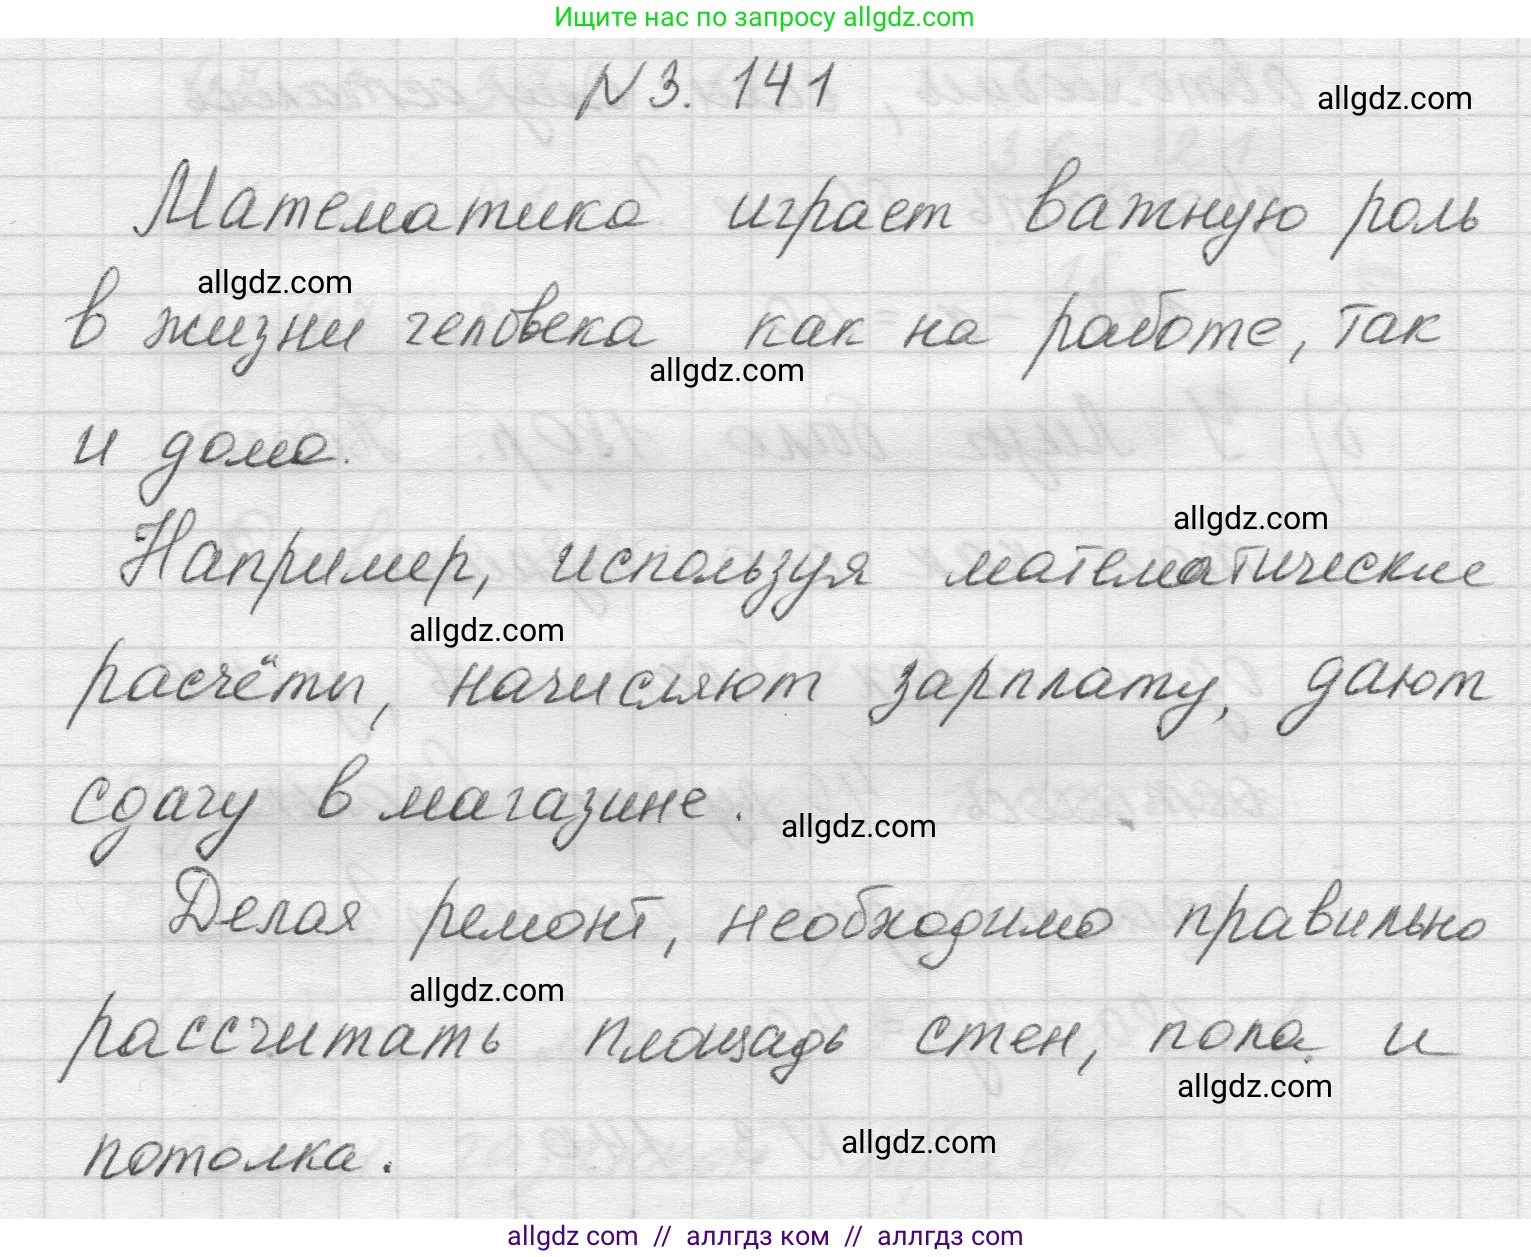 Ищите нас по запросу allgdz.com
N 3. 141
allgdz.com
Математика играет важную роль
allgdz.com
в жизни человека как на работе, так
allgdz.com
и дома.
allgdz.com
Например, используя математические
allgdz.com
расчёты, начисляют зарплату, дают
сдачу в магазине.
allgdz.com
Делая ремонт, необходимо правильно
allgdz.com
рассчитать площадь стен, пола и
allgdz.com
потолка.
allgdz.com
allgdz com // аллгдз ком // аллгдз com